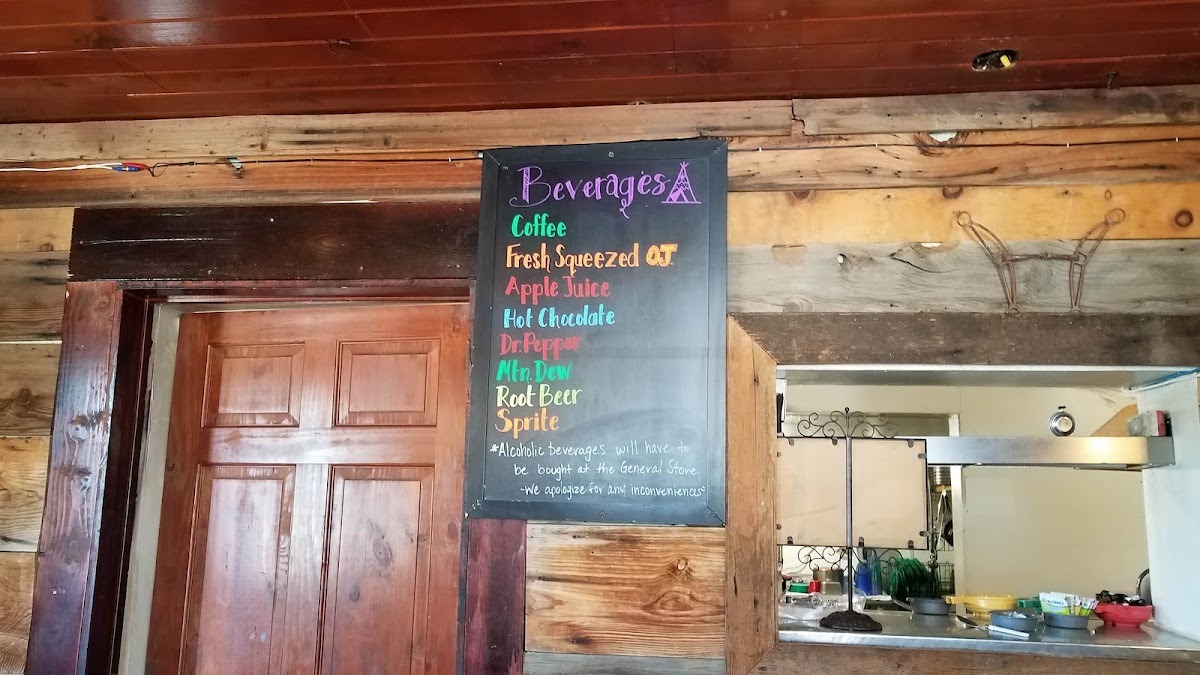 Beverages
Coffee
Fresh Squeezed O.J.
Apple Juice
Hot Chocolate
Dr. Pepper
Mtn. Dew
Root Beer
Sprite
*Alcoholic beverages will have to
be bought at the General Store.
-We apologize for any inconveniences-